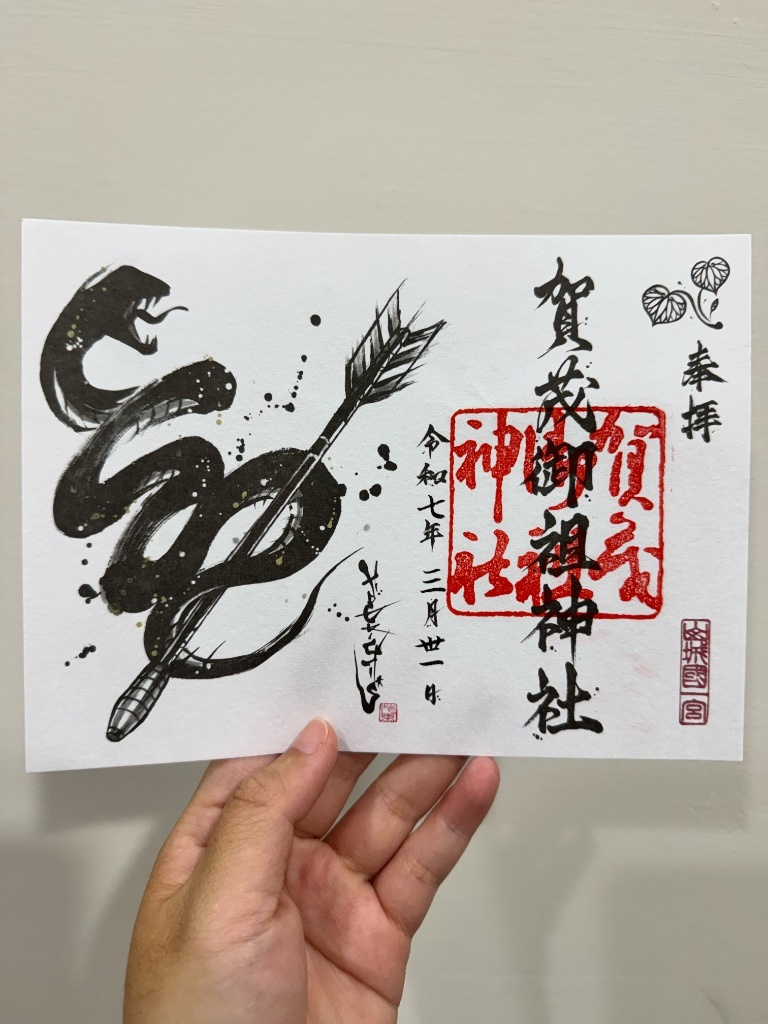 奉拝
山城國一宮
賀茂御祖神社
賀茂
御祖
神社
令和七年 三月 卅一日